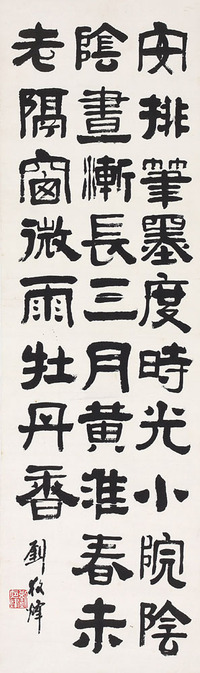 安排筆墨度時光小院陰
陰晝漸長三月黃淮春未
老隔窗微雨牡丹香
劉